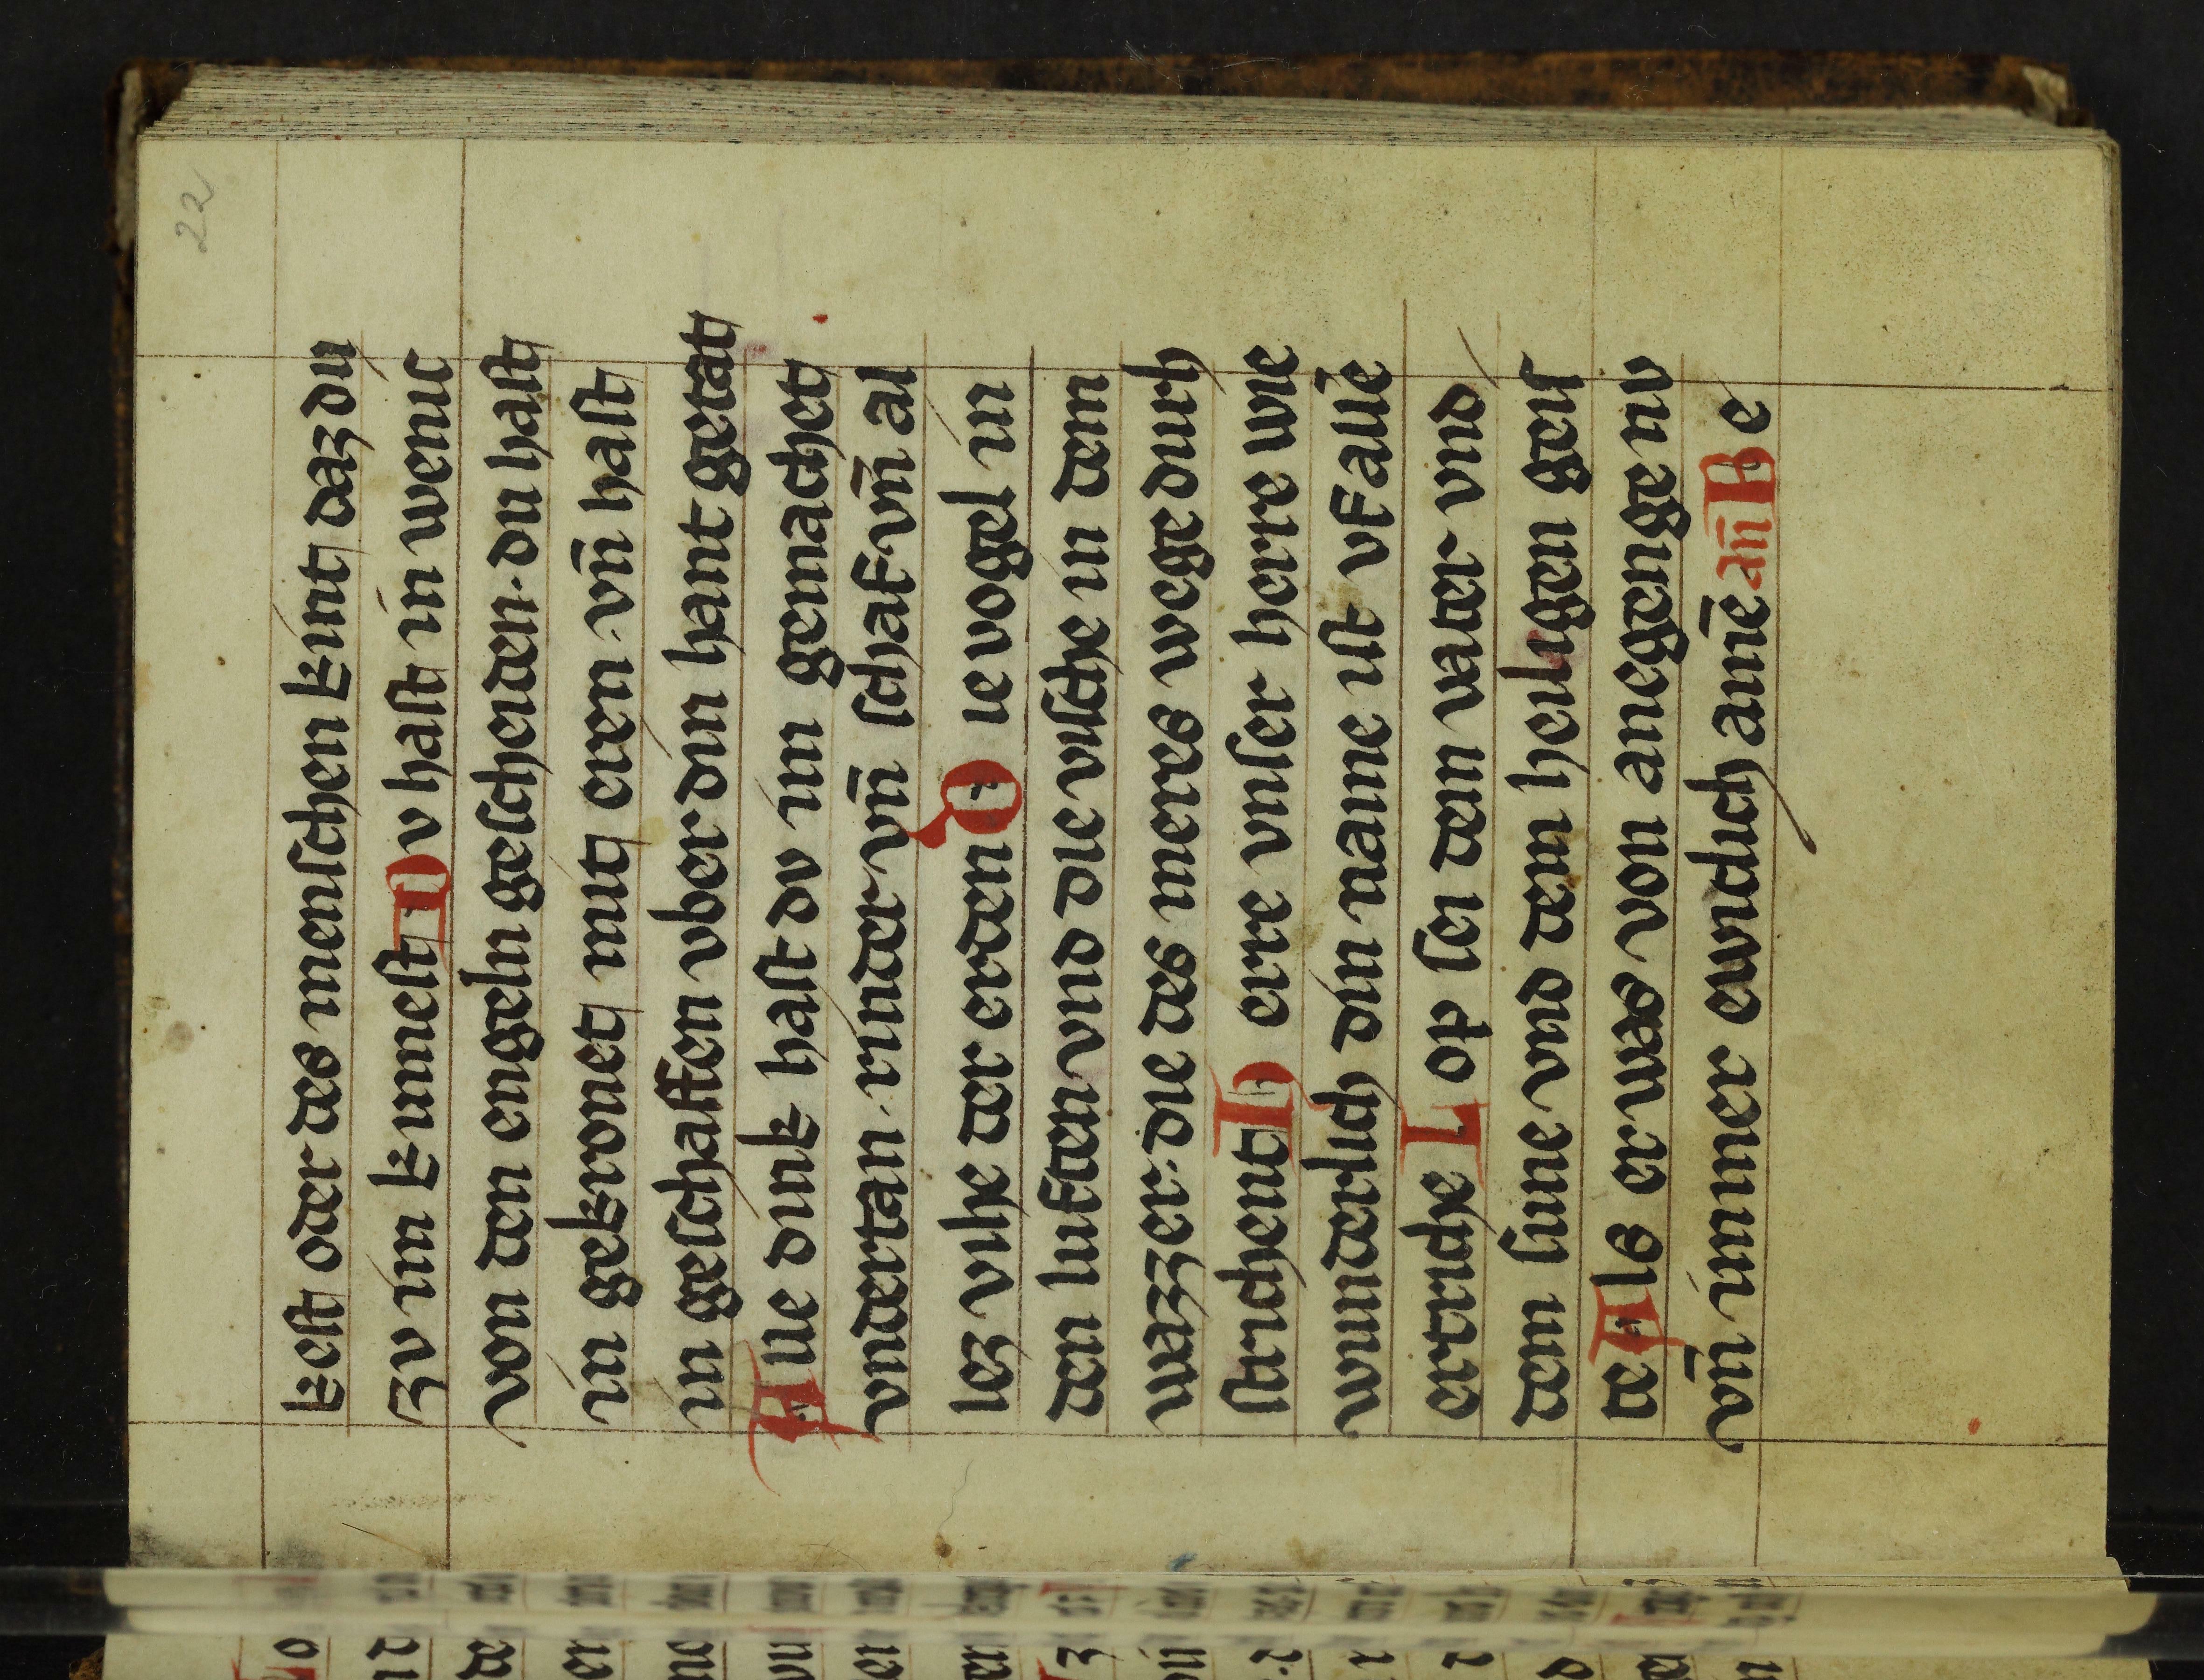 22
kest oder des menschen kint daz du
zv im kumest Dv hast in wenic
von den engeln gescheiden · du hast
in gekronet mit eren · vn̄ hast
in geschaffen vber din hant getat
Alle dink hast dv im gemachet
vndertan · rinder vn̄ schaf · vn̄ al
lez vihe der erden Die vogel in
den luften vnd die vische in dem
wazzer · die des meres wege durh
strichent Herre vnser herre wie
wunderlich din name ist vf alle
ertriche Lop sei dem vater vnd
dem sune vnd dem heiligen geis
te Als er was von anegenge nv
vn̄ immer ewiclich amē an̄ Be